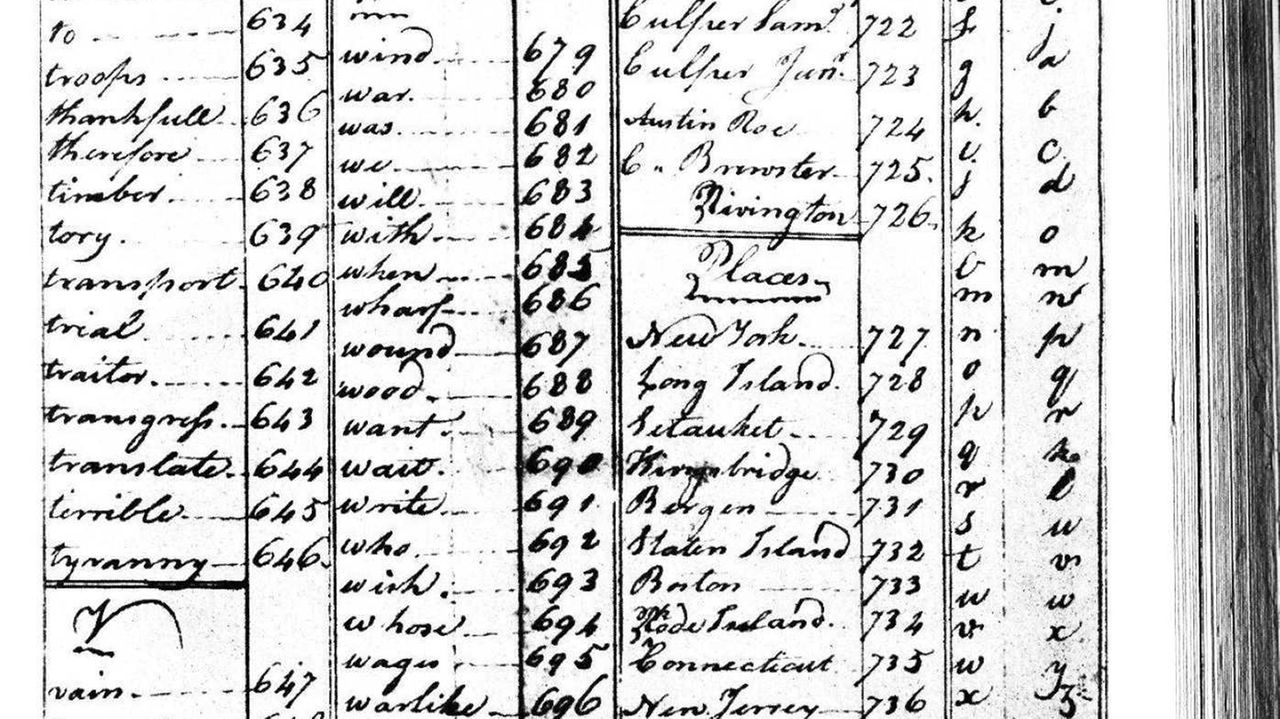 to 634
troops 635
thankfull 636
therefore 637
timber 638
tory 639
transport 640
trial 641
traitor 642
transgress 643
translate 644
terrible 645
tyranny 646
V
vain 647
wind 679
war 680
was 681
we 682
will 683
with 684
when 685
wharf 686
wound 687
wood 688
want 689
wait 690
write 691
who 692
wish 693
whose 694
wages 695
warlike 696
Culper Saml. 722
Culper Junr. 723
Austin Roe 724
C. Brewster 725
Rivington 726
Places
New York 727
Long Island 728
Setauket 729
Kingsbridge 730
Bergen 731
Staten Island 732
Boston 733
Rhode Island 734
Connecticut 735
New Jersey 736
f j
g a
h b
i c
j d
k o
l m
m n
n p
o q
p r
q k
r l
s u
t v
u w
v x
w y
x z